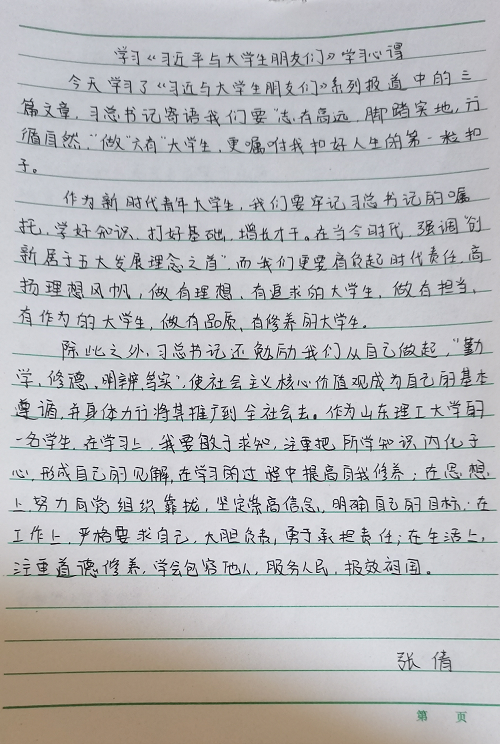 学习《习近平与大学生朋友们》学习心得
今天学习了《习近与大学生朋友们》系列报道中的三
篇文章，习总书记寄语我们要“志存高远，脚踏实地，行
循自然，”做“六有”大学生，更嘱咐我扣好人生的第一粒扣
子。
作为新时代青年大学生，我们要牢记习总书记的嘱
托，学好知识，打好基础，增长才干。在当今时代，强调“创
新居于五大发展理念之首”，而我们更要肩负起时代责任，高
扬理想风帆，做有理想，有追求的大学生，做有担当，
有作为的大学生，做有品质，有修养的大学生。
除此之外，习总书记还勉励我们从自己做起，“勤
学，修德，明辨，笃实”，使社会主义核心价值观成为自己的基本
遵循，并身体力行将其推广到全社会去。作为山东理工大学的
一名学生，在学习上，我要敏于求知，注重把所学知识内化于
心，形成自己的见解，在学习的过程中提高自我修养；在思想
上，努力向党组织靠拢，坚定崇高信念，明确自己的目标；在
工作上，严格要求自己，大胆负责，勇于承担责任；在生活上，
注重道德修养，学会包容他人，服务人民，报效祖国。
张倩
第 页